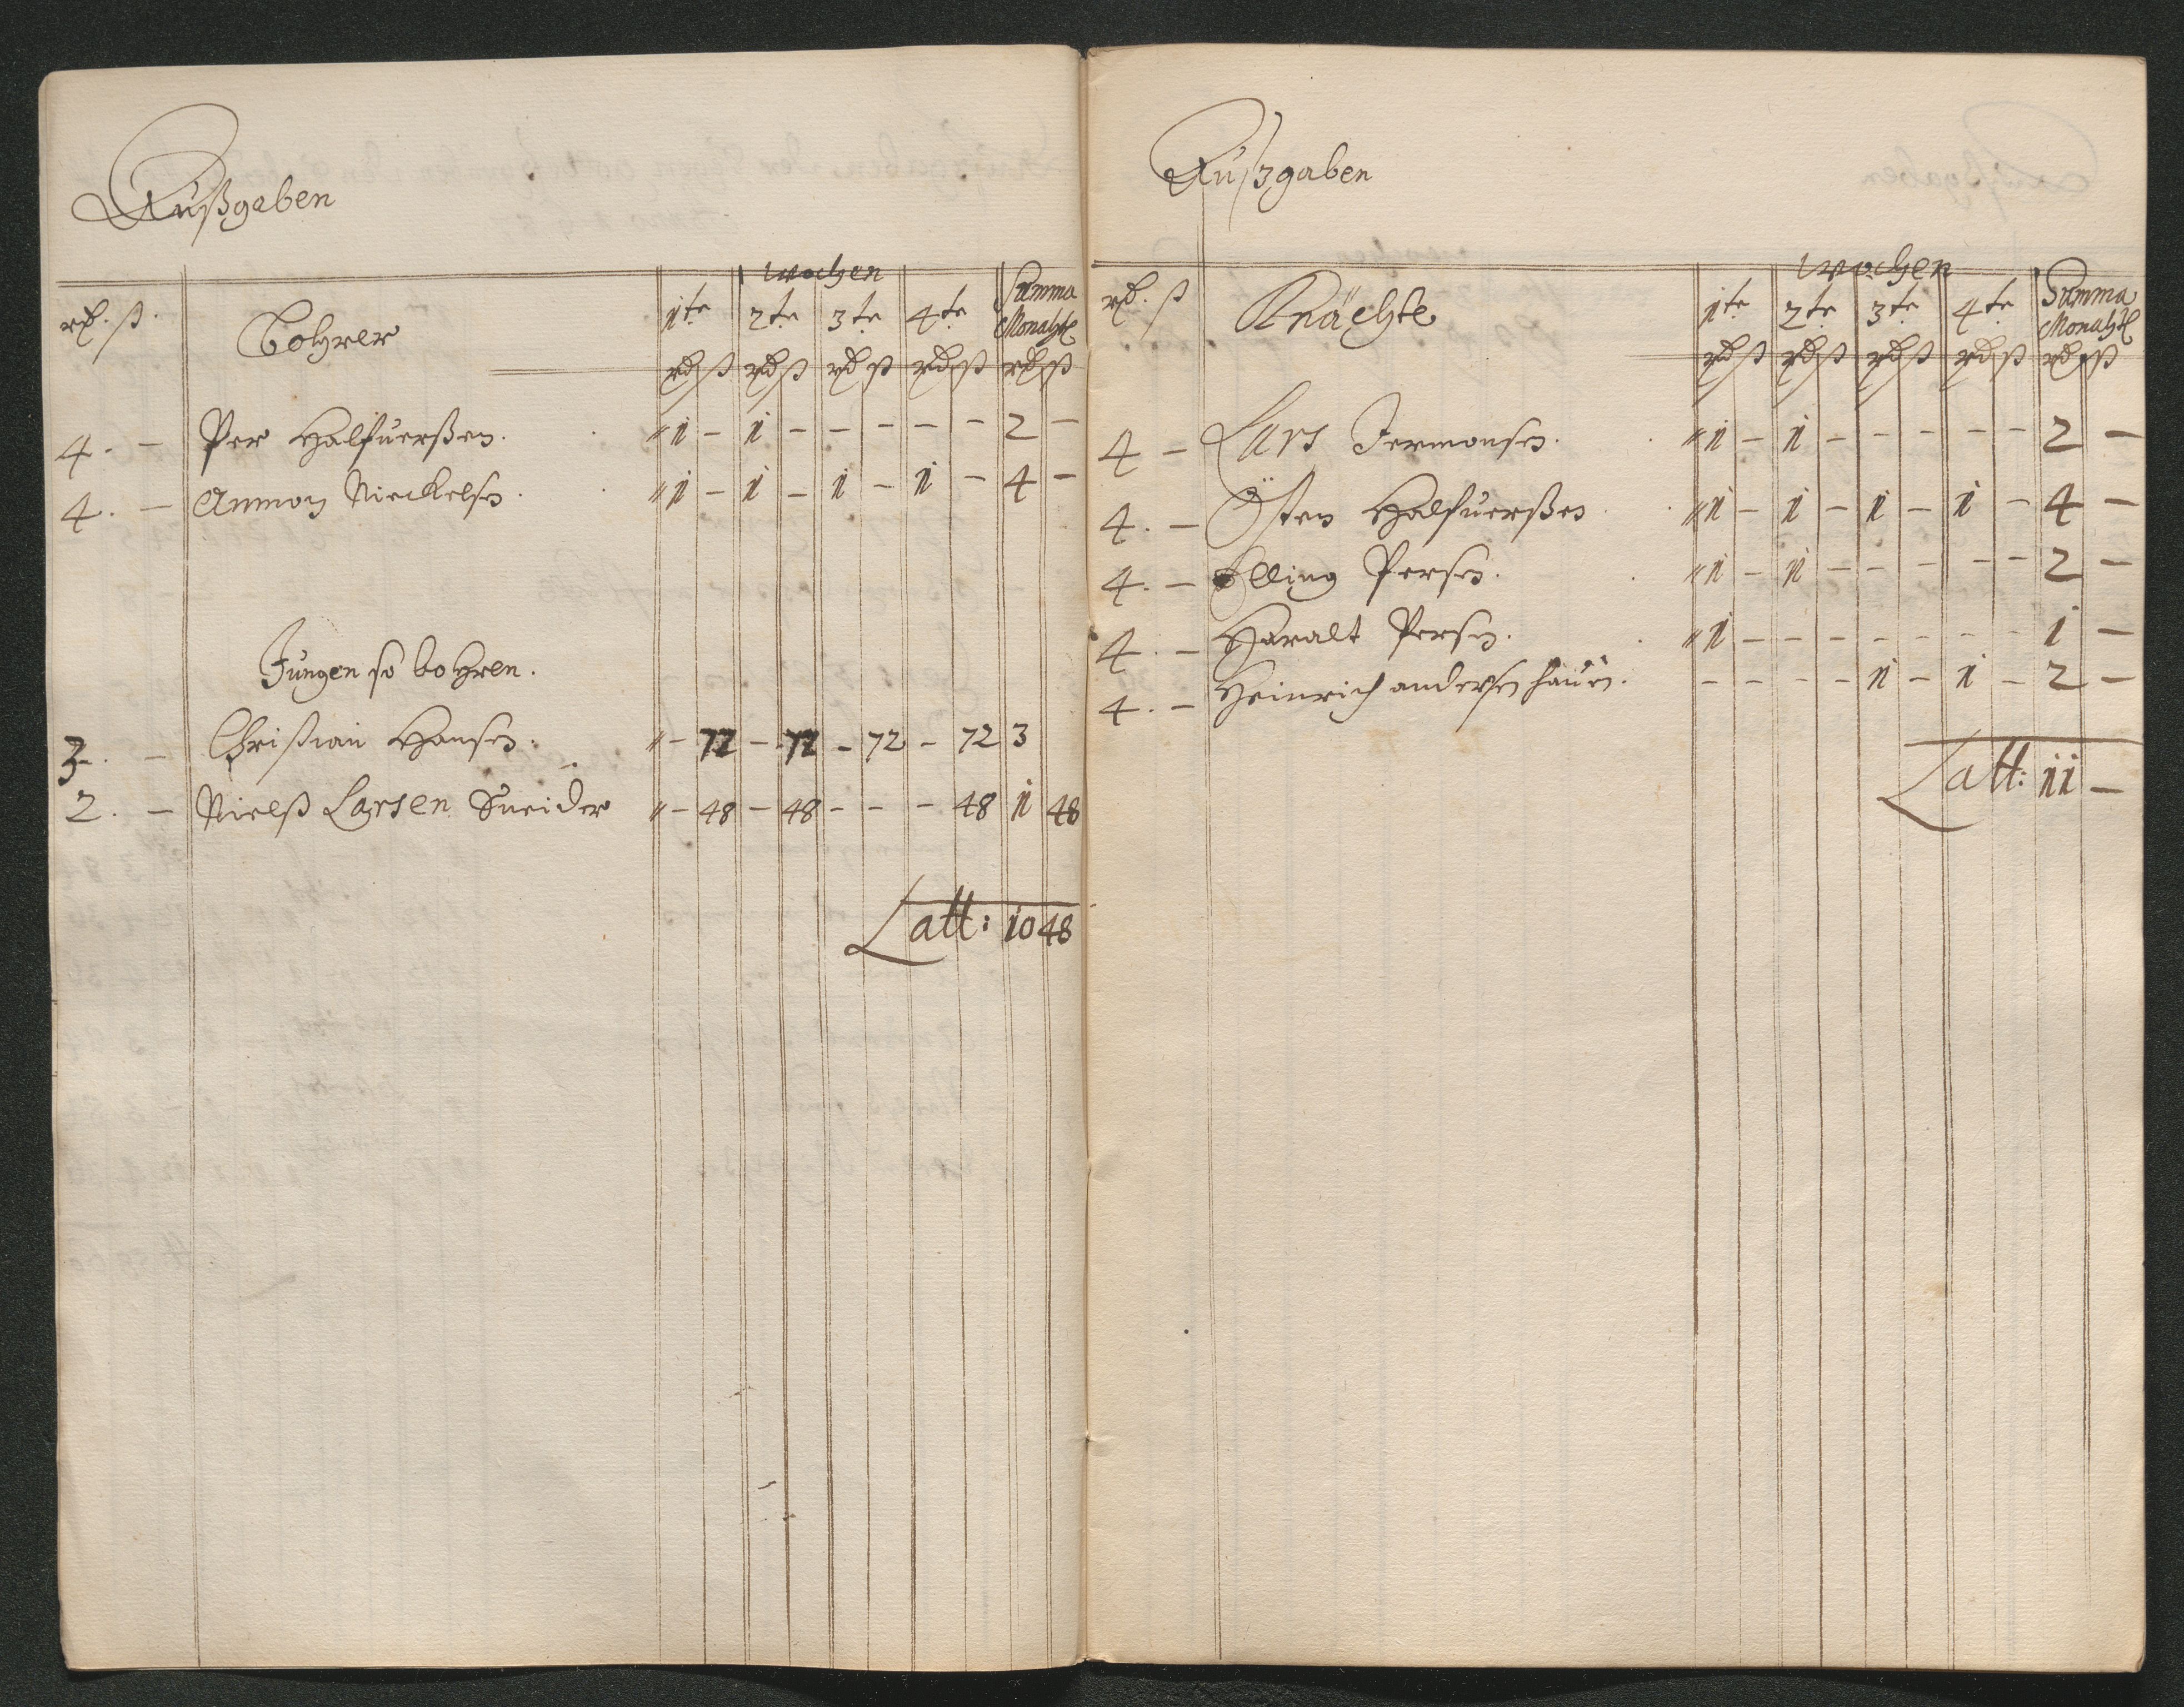 Außgaben
wochen
rd. ß. Bohrer 1te 2te 3te 4te Summa Monahtl
rd ß rd ß rd ß rd ß rd ß
4. — Per Halfuerßen. " 1 – 1 – – – – – 2 –
4. — Ammon Nieckelsen. " 1 – 1 – 1 – 1 – 4 –
Jungen so bohren.
3. — Christian Hansen. " – 72 – 72 – 72 – 72 3
2. — Nielß Larsen Sneider " – 48 – 48 – – – 48 1 48
Latt: 10 48
Außgaben
wochen
rd. ß Knächte 1te 2te 3te 4te Summa Monahtl
rd ß rd ß rd ß rd ß rd ß
4 — Lars Iermonsen. " 1 – 1 – – – – – 2 –
4. — Östen Halfuerßen " 1 – 1 – 1 – 1 – 4 –
4. — Elling Persen. " 1 – 1 – – – – – 2 –
4. — Haralt Persen. " 1 – – – – – – – 1 –
4. — Heinrich andersen – – – – 1 – 1 – 2 –
Latt: 11 –